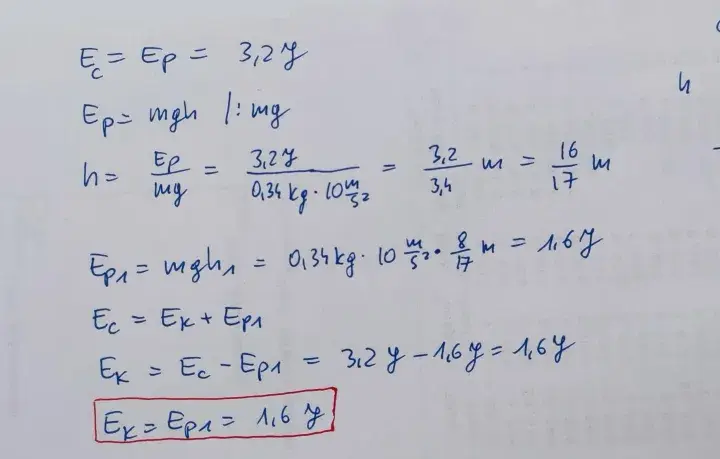 Ec = Ep = 3,2 J
Ep = mgh /: mg
h = Ep/mg = 3,2 J/0,34 kg · 10 m/s² = 3,2/3,4 m = 16/17 m
h
Ep1 = mgh1 = 0,34 kg · 10 m/s² · 8/17 m = 1,6 J
Ec = Ek + Ep1
Ek = Ec - Ep1 = 3,2 J - 1,6 J = 1,6 J
Ek = Ep1 = 1,6 J